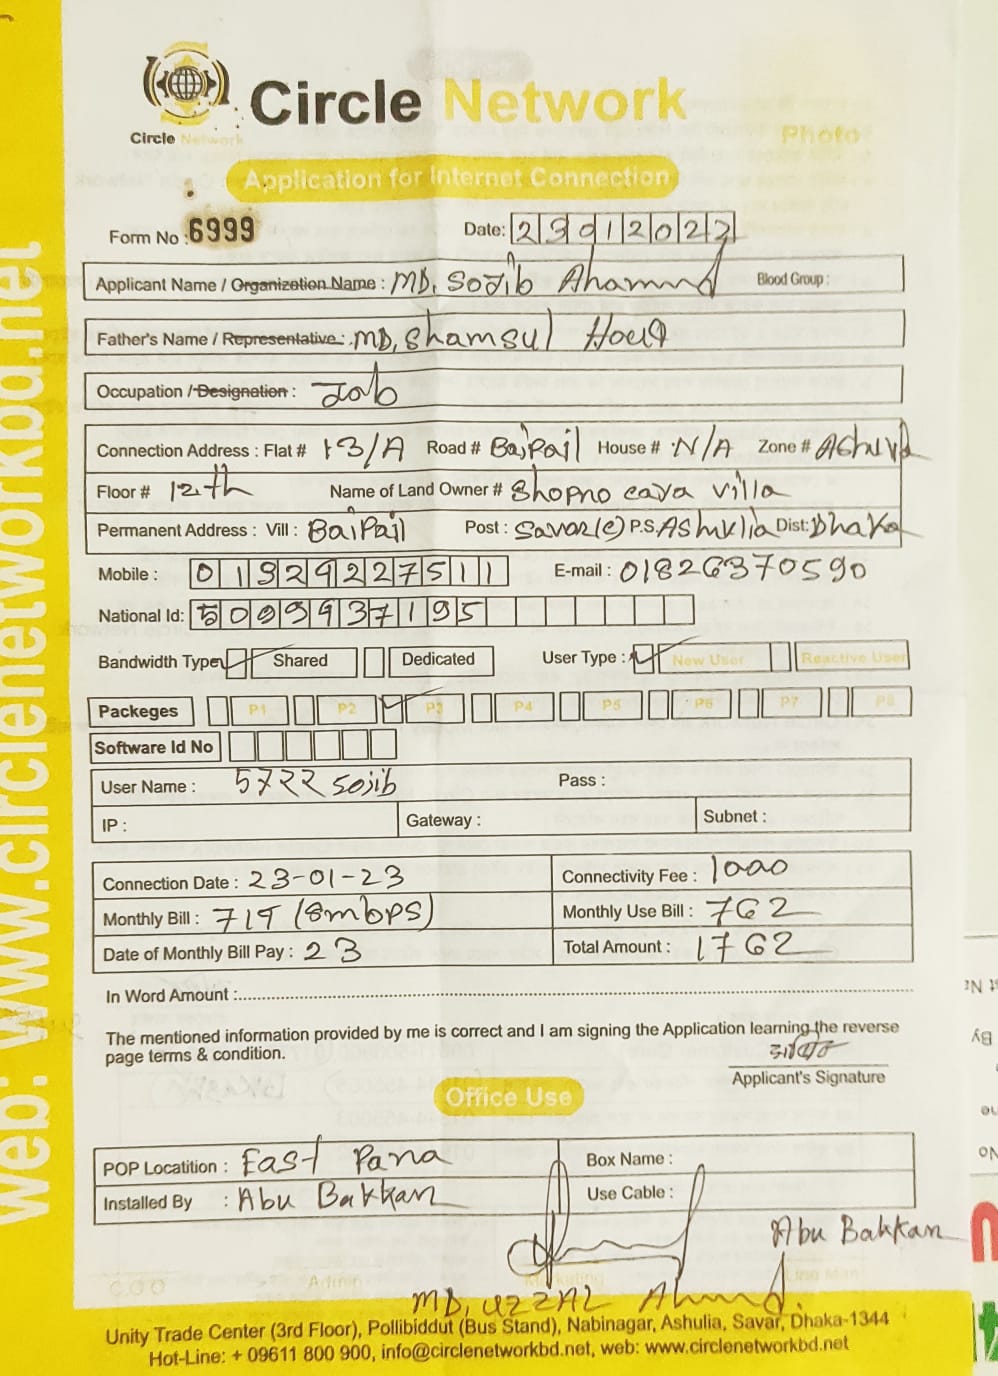 Circle Network
Circle Network
Photo
Application for Internet Connection
Form No : 6999
Date: 23012023
Applicant Name / Organization Name : MD. Sojib Ahamed
Blood Group :
Father's Name / Representative : MD, Shamsul Hoque
Occupation / Designation : Job
Connection Address : Flat # 13/A Road # Baipail House # N/A Zone # Ashulia
Floor # 12th Name of Land Owner # Shopno cava villa
Permanent Address : Vill : Baipail Post : Savar(c) P.S. Ashulia Dist: Dhaka
Mobile : 01929227511 E-mail : 01826370590
National Id: 5099937195
Bandwidth Type Shared Dedicated User Type : New User Reactive User
Packeges P1 P2 P3 P4 P5 P6 P7 P8
Software Id No
User Name : 5722 Sojib Pass :
IP : Gateway : Subnet :
Connection Date : 23-01-23 Connectivity Fee : 1000
Monthly Bill : 715 (8mbps) Monthly Use Bill : 762
Date of Monthly Bill Pay : 23 Total Amount : 1762
In Word Amount :
The mentioned information provided by me is correct and I am signing the Application learning the reverse
page terms & condition.
Applicant's Signature
Office Use
POP Locatition : East Para Box Name :
Installed By : Abu Bakkar Use Cable :
Abu Bakkar
C.O.O Admin Marketing Line Man
MD, UZZAL Ahmed.
Unity Trade Center (3rd Floor), Pollibiddut (Bus Stand), Nabinagar, Ashulia, Savar, Dhaka-1344
Hot-Line: + 09611 800 900, info@circlenetworkbd.net, web: www.circlenetworkbd.net
web: www.circlenetworkbd.net